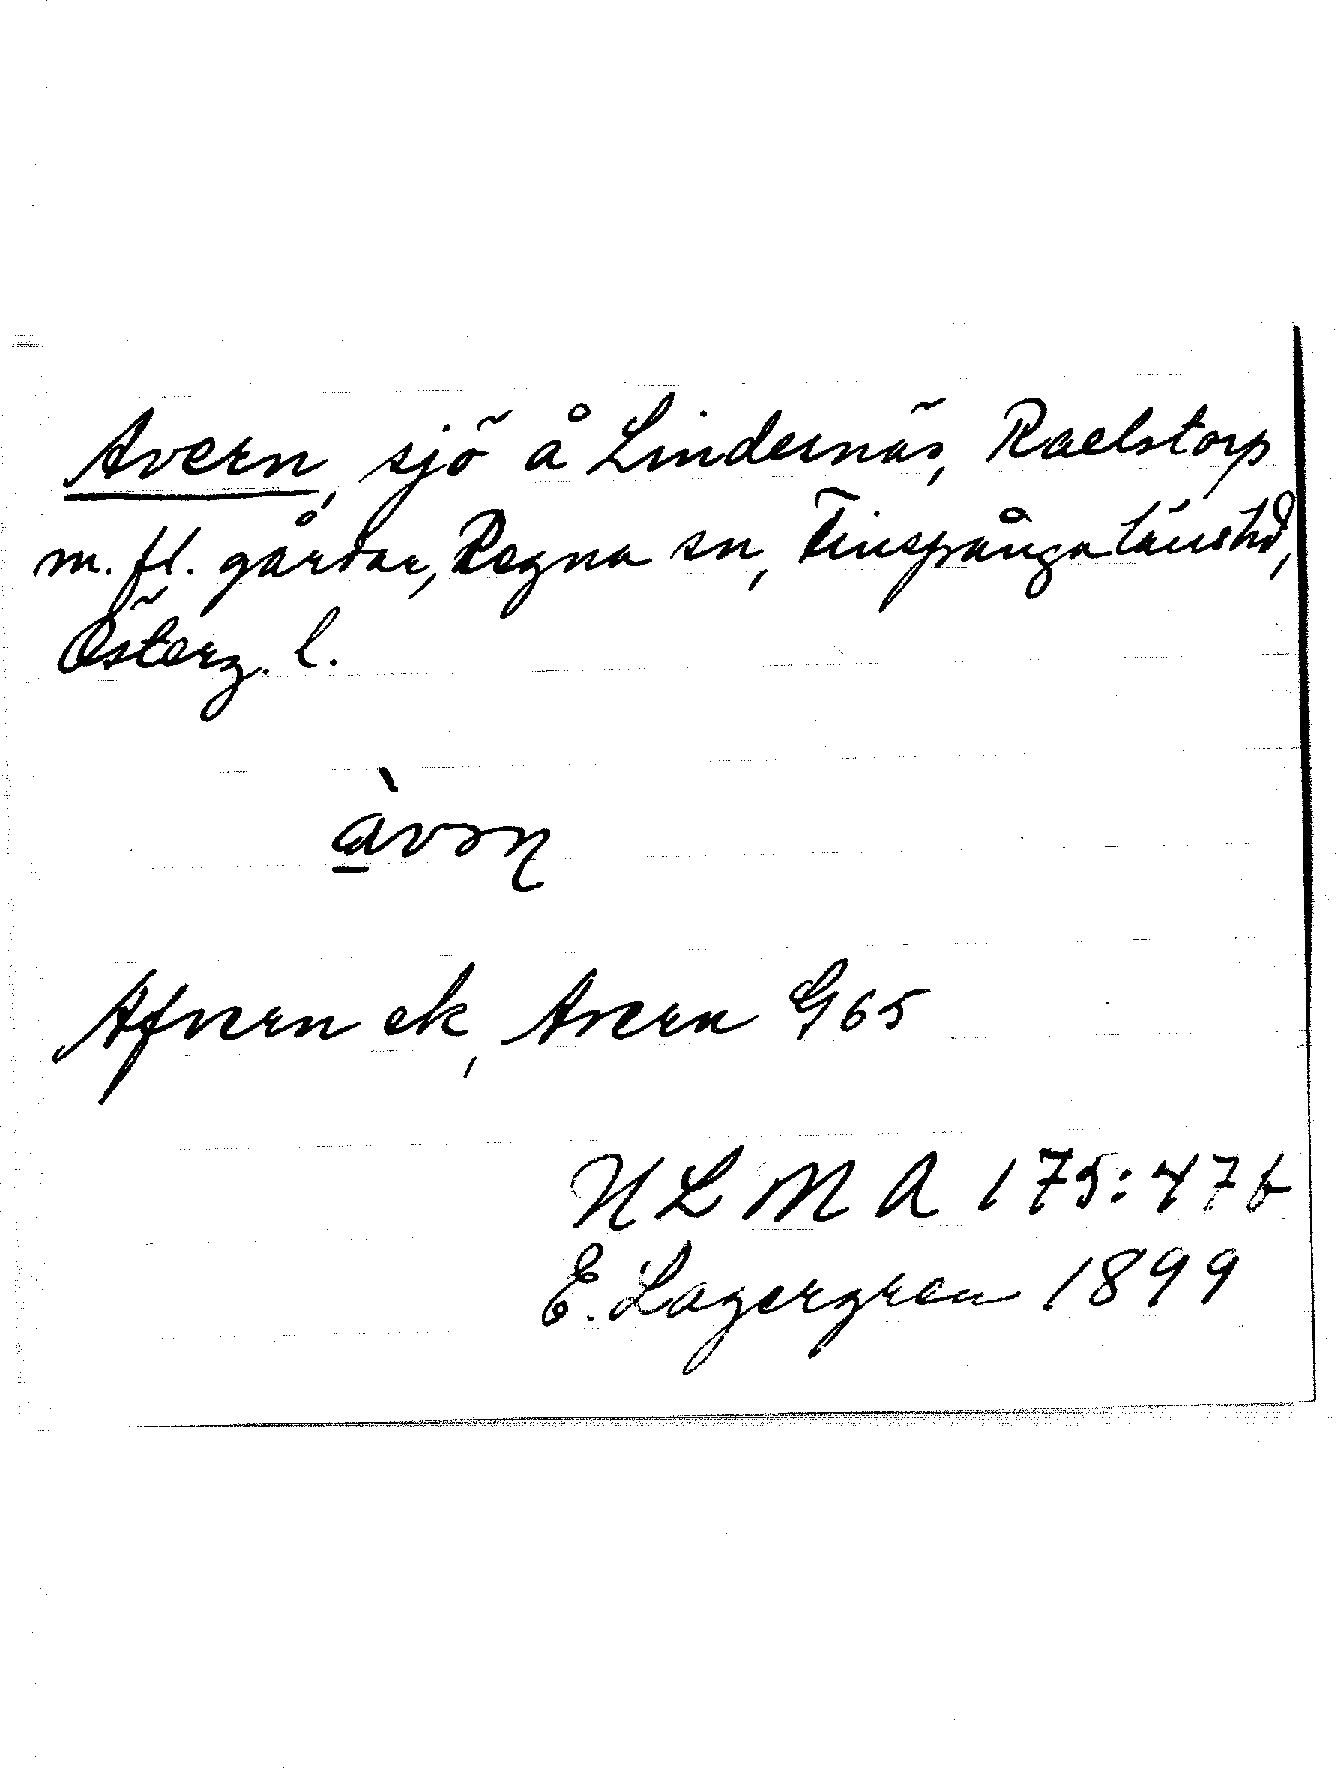 Avern, sjö å Lindernäs, Raelstorp
m. fl. gårdar, Regna sn, Finspånga länshd,
Österg. l.
àvəɳ
Afvern ek, Avern G 65
NLMA 175:47 b
E. Lagergren 1899